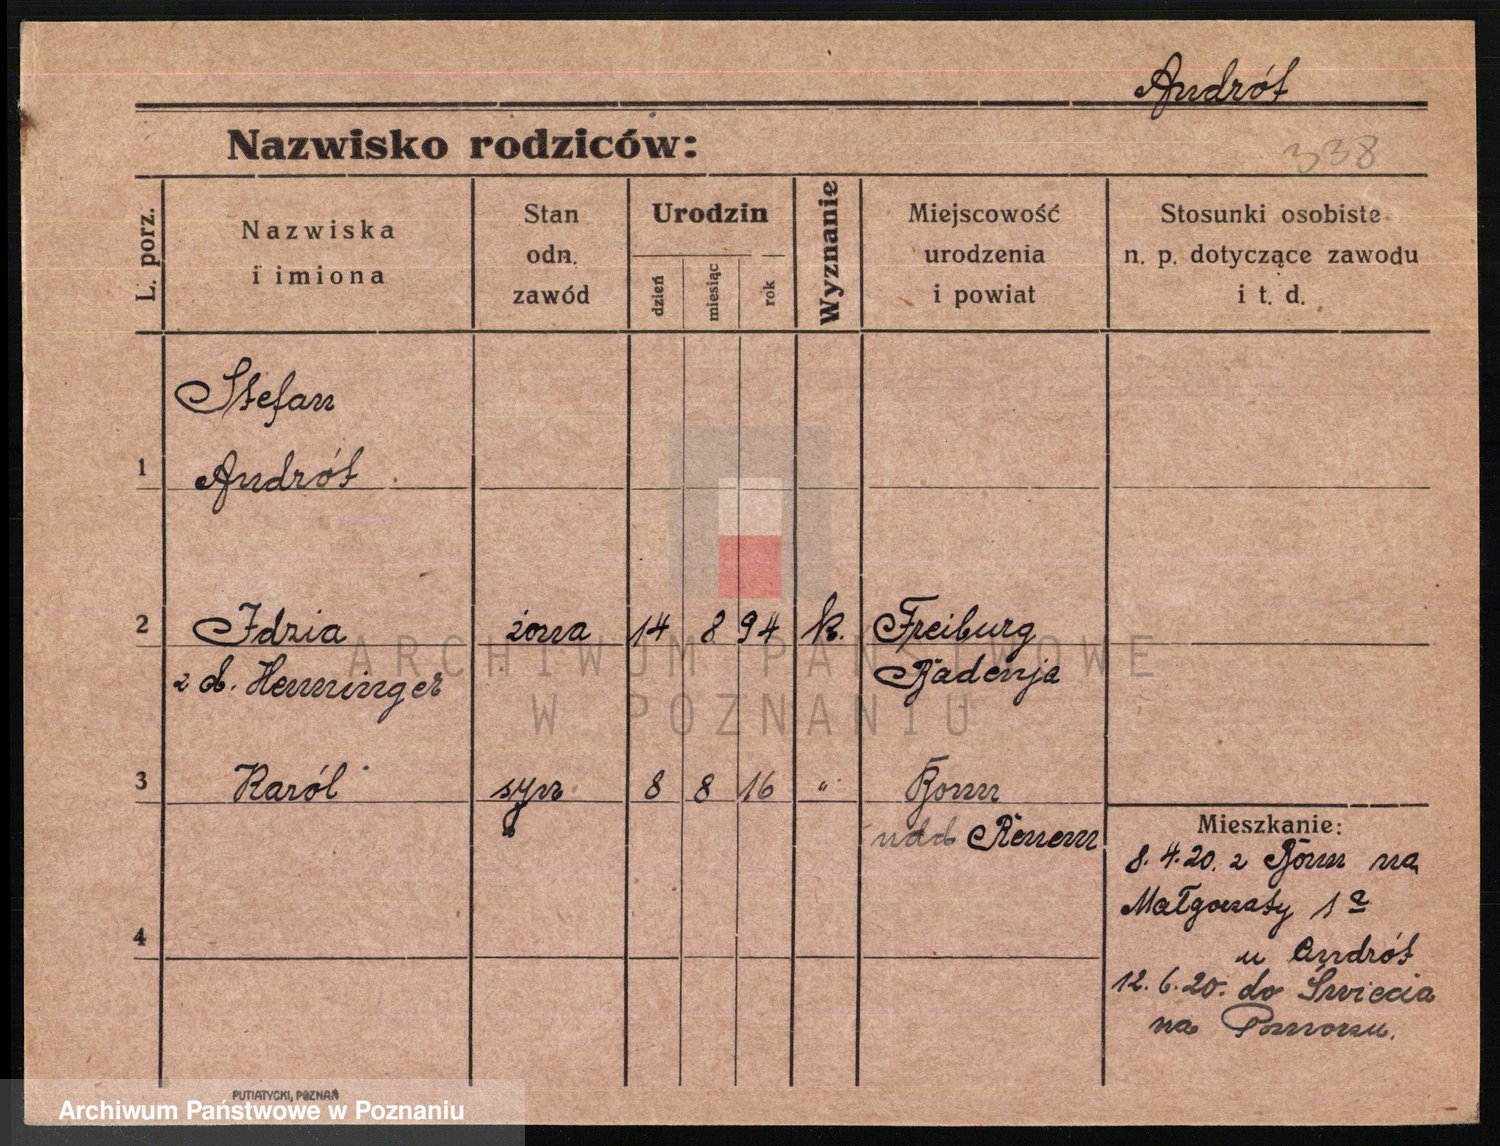 Andrót
Nazwisko rodziców:
338
L. porz.
Nazwiska
i imiona
Stan
odn.
zawód
Urodzin
dzień
miesiąc
rok
Wyznanie
Miejscowość
urodzenia
i powiat
Stosunki osobiste
n. p. dotyczące zawodu
i t. d.
Stefan
1 Andrót
2 Idzia żona 14 8 94 k. Freiburg
z d. Henninger Badenja
3 Karól syn 8 8 16 " Bonn
ndd Renem
4
Mieszkanie:
8. 4. 20. z Bonn na
Małgorzaty 1a
u Andrót
12. 6. 20. do Świecia
na Pomorzu.
ARCHIWUM PAŃSTWOWE
W POZNANIU
PUTIATYCKI, POZNAŃ
Archiwum Państwowe w Poznaniu